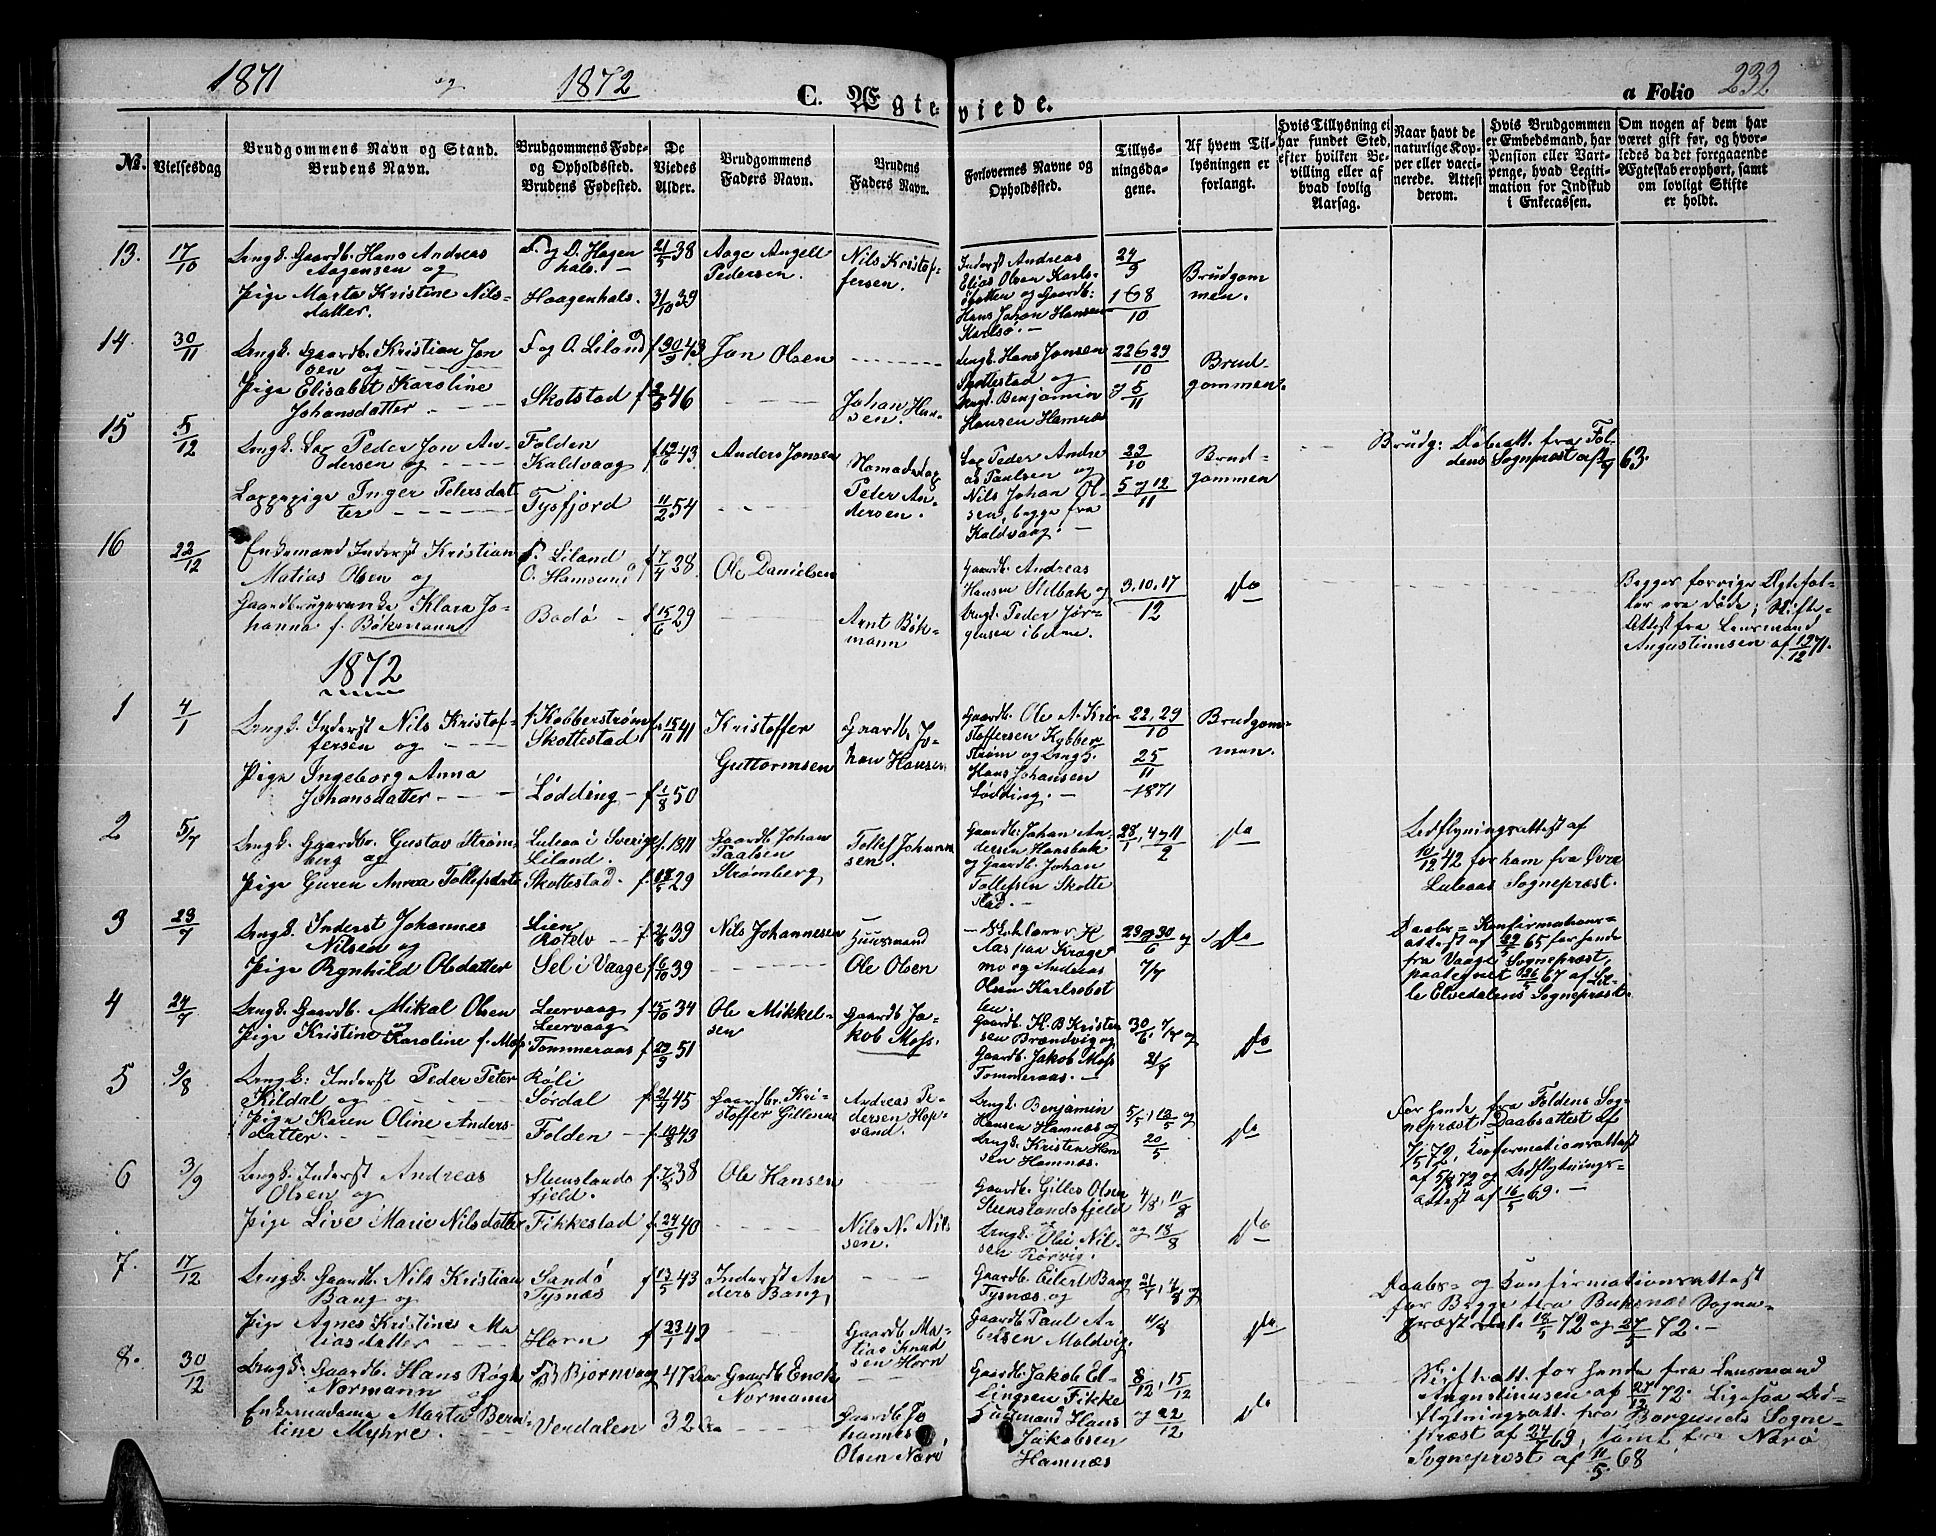 1871 og 1872 C. Ægteviede. a Folio 232
No. Vielsesdag
Brudgommens Navn og Stand.
Brudens Navn.
Brudgommens Føde-
og Opholdssted.
Brudens Fødested.
De
Viedes
Alder.
Brudgommens
Faders Navn.
Brudens
Faders Navn.
Forlovernes Navne og
Opholdssted.
Tillys-
ningsda-
gene.
Af hvem Til-
lysningen er
forlangt.
Hvis Tillysning ei
har fundet Sted,
efter hvilken Be-
villing eller af
hvad lovlig
Aarsag.
Naar havt de
naturlige Kop-
per eller vacci-
nerede. Attest
derom.
Hvis Brudgommen
er Embedsmand, har
Pension eller Vart-
penge, hvad Legiti-
mation for Indskud
i Enkecassen.
Om nogen af dem har
været gift før, og hvor-
ledes da det foregaaende
Ægteskab er ophørt, samt
om lovligt Skifte
er holdt.
13. 17/10
Ungk. Gaardb. Hans Andreas
Aagensen og
Pige Marta Kristine Nils-
datter.
F. og O. Hagen
hals. -
Haagenhals.
21/5 38
31/10 39
Aage Angell
Pedersen.
Nils Kristof-
fersen.
Inderst Andreas
Elias Olsen Karls-
Hans Johan Hansen
Karlsö. -
Brudgom
men.
14. 30/11
Ungk. Gaardb. Kristian Jon
sen og
Pige Elisabet Karoline
Johansdatter
F. og O. Liland
Skotstad
Jon Olsen
Johan Han-
sen.
Ungk. Hans Jonsen
Skottestad og
Ungk. Benjamin
Hansen Hamnæs
22 & 29/10
og 5/11
Brud-
gommen.
15 5/12
Ungk. Lap Peder Jon An-
dersen og
Lappepige Inger Petersdat
ter
Folden
Kaldvaag
Tysfjord
11/2 54
Anders Jonsen
Peter An-
dersen.
Lap Peder Andre
as Paulsen og
Nils Johan Ol-
sen, begge fra
Kaldvaag. -
29/10
5 og 12/11
Brud-
gommen
Brudg: Døbeatt. fra Fol-
dens Sogneprest af 63.
16 22/12
Enkemand Inderst Kristian
Matias Olsen og
Gaardbrugerenke Klara Jo-
hanna f. Bökmann
F. Liland
O. Hamsund
Bodö
f 7/4 28
f 15/6 29
Ole Danielsen
Arnt Bök-
mann
Gaardb. Andreas
Hansen Stilbak og
Ungk. Peder Jör-
gensen ibdm.
3. 10. 17/12
Do
Begges forrige Ægtefæl-
ler ere døde; Skifte-
Attest fra Lensmand
Augustinusen af 19/12 71.
1872
1 4/1
Ungk. Inderst Nils Kristof-
fersen og
Pige Ingeborg Anna
Johansdatter
f Kobberström
Skottestad
Lödding
f 15/11 41
f 1/8 50
Kristoffer
Guttormsen
Gaardb. Jo-
han Hansen
Gaardb. Ole A. Kri-
stoffersen Kobber
ström og Ungk.
Hans Johansen
Lödding. -
22, 29/10
25/11
1871
Brudgom-
men.
2 5/7
Ungk. Gaardbr. Gustav Ström-
berg og
Pige Guren Anna Tollefsdatter
Luleaa i Sverige
Liland.
Skottestad
f. 1811
f. 18/5 29
Gaardb. Johan
Paalsen
Strömberg
Tollef Johann
sen
Gaardb. Johan An-
dersen Hansbak
og Gaardb. Johan
Tollefsen Skotte
stad. -
28/1, 4 og 11/2
Do
Udflytningsattest af
10/12 42 for ham fra Övre
Luleaas Sogneprest.
3 23/7
Ungk. Inderst Johannes
Nilsen og
Pige Rgnhild Olsdatter
Lien
Rotdv
Sel i Vaage
39
f 6/10 39
Nils Johannesen
Huusmand
Ole Olsen
Skolelærer K
Aas paa Krage
mo og Andreas
Olsen Karlsobot
ten.
23 og 30/6 og
7/7
Do
Daabs- = Konfirmations-
attest af 29/5 65 for hende
fra Vaage Sogneprest,
paategnet 26/5 67 af Lil-
le Elvedalens Sogneprest.
4 24/7
Ungk. Gaardb. Mikal Olsen
og
Pige Kristine Karoline f. Moss.
Leervaag
Leervaag
Tommeraas
f 15/10 34
f 29/9 51
Ole Mikkel-
sen
Gaardb Ja-
kob Moss.
Gaardb. H. B Kristen
sen Brændvig og
Gaardb. Jakob Moss
Tommeraas. -
30/6, 7/7 og
21/7
Do
5 9/8
Ungk: Inderst Peder Peter
Kildal og
Pige Karen Oline Anders-
datter.
Röli
Sördal
Folden
f 21/4 45
f 19/8 43
Gaardbr. Kri-
stoffer Gillesen
Andreas Pe-
dersen Hop-
vand.
Ungk. Benjamin
Hansen Hamnæs og
Ungk. Kristen Han
sen Hamnæs.
5/5, 12/5 og
20/5
Do
For hende fra Foldens Sog-
neprest Daabsattest af
7/5 72, Konfirmationsattest
af 5/8 72 og Udflytnings-
attest af 16/5 69. -
6 3/9
Ungk. Inderst Andreas
Olsen og
Pige Live Marie Nilsdatter
Steenslands
fjeld.
Fikkestad
f. 7/8 38
f 24/9 40
Ole Hansen
Nils N. Nil-
sen.
Gaardb. Gilles Olsen
Steenslandsfjeld
Ungk. Ole Nil-
sen Rörvig.
4/8, 11/8
og 18/8
Do
7. 17/12
Ungk. Gaardb. Nils Kristian
Bang og
Pige Agnes Kristine Ma
tiasdatter
Sandö
Tysnæs
Horn
f 13/5 43
f 23/1 49
Inderst An
ders Bang,
Gaardb Ma-
tias Knud
sen Horn
Gaardb. Eilert Bang
Tysnæs og
Gaardb Paul A-
Moldvig.
21/7, 4/8 og
11/8
Do
Daabs- og Konfirmationsattest
for Begge fra Buksnæs Sogne-
præst 18/5 72 og 27/5 72. -
8. 30/12
Ungk. Gaardb. Hans Røgh
Normann og
Enkemadame Marta Bern-
tine Myhre.
Bjornvaag
Verdalen
47 Aar
32 Aar
Gaardb Enok
Normann
Gaardb Jo
hannes
Olsen Nærö
Gaardb Jakob El-
lingsen Fikke
Huusmand Hans
Jakobsen
Hamnæs
8/12, 15/12
og 22/12
Do
Skifteatt. for hende fra Lensmand
Augustinusen af 27/12 72. Ligesaa Ud-
flytningsatt. fra Borgunds Sogne-
præst af 24/7 69, samt fra Nærö
Sogneprest af 11/5 68